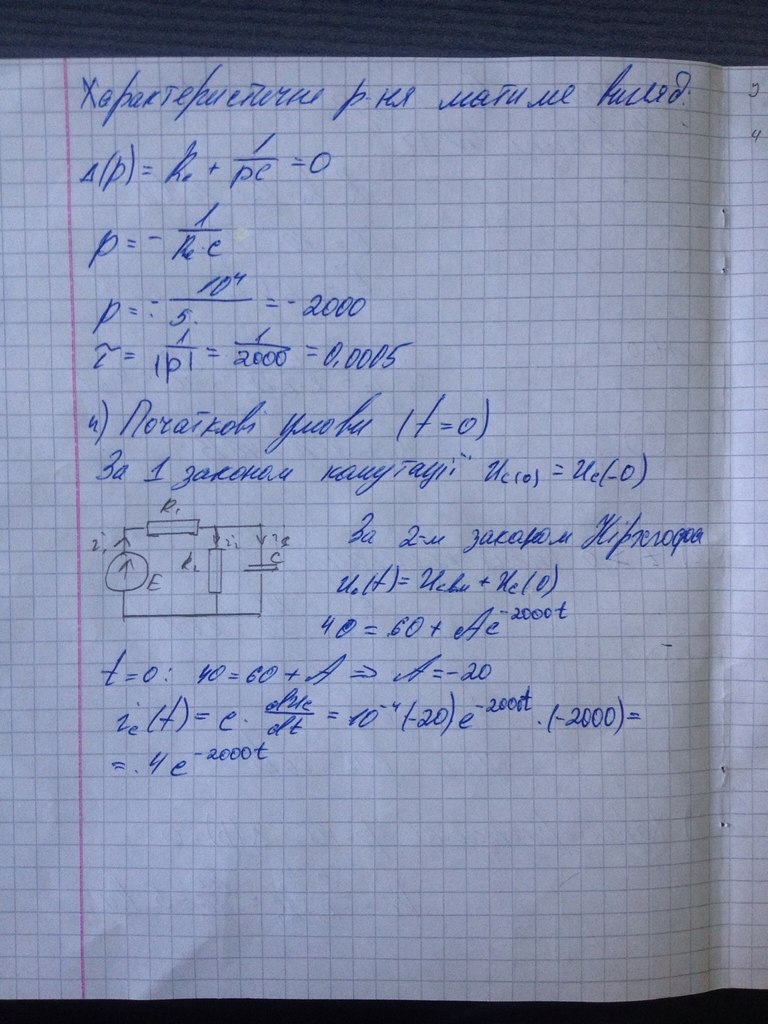 Характеристичне р-ня матиме вигляд:
Δ(p) = Rₑ + 1/pC = 0
p = - 1/(Rₑ·C)
p = - 10⁴/5 = - 2000
τ = 1/|p| = 1/2000 = 0,0005
4) Початкові умови (t=0)
За 1 законом комутації Uc(0) = Uc(-0)
R₁
i₁ E R₂ i₂ C
За 2-м законом Кірхгофа
Uc(t) = Uc вм + Uc(0)
40 = 60 + Ae^(-2000t)
t=0: 40 = 60 + A ⇒ A = -20
ic(t) = C · dUc/dt = 10⁻⁴(-20)e^(-2000t) · (-2000) =
= 4e^(-2000t)